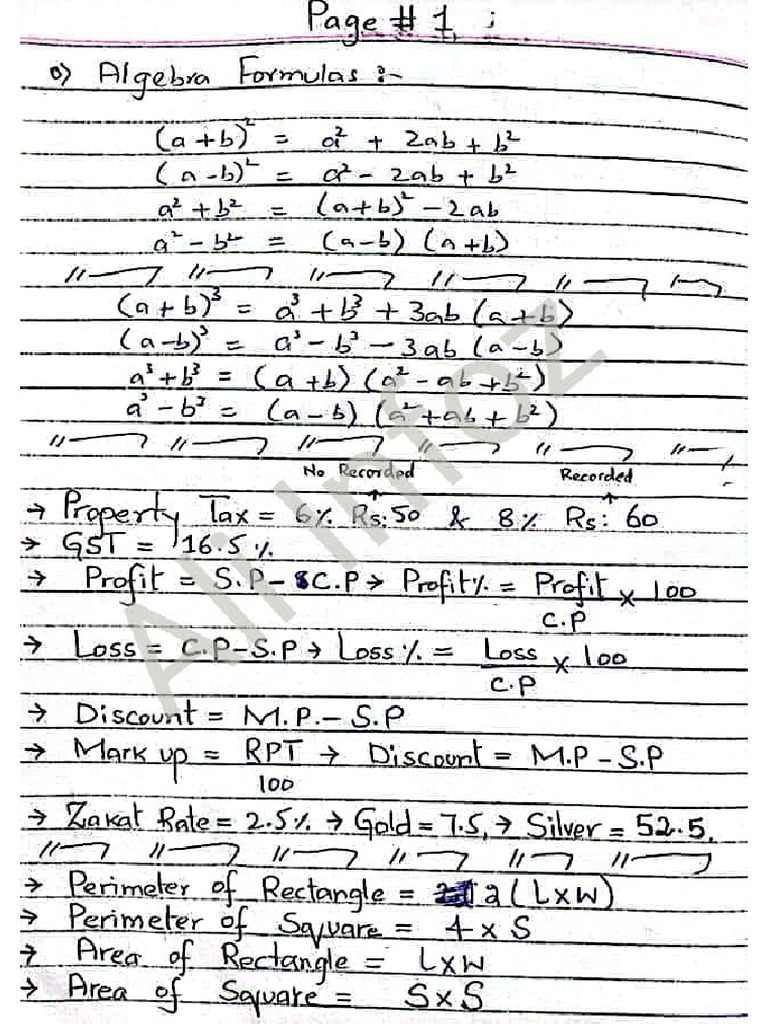 Page # 1
Algebra Formulas :-
(a+b)² = a² + 2ab + b²
(a-b)² = a² - 2ab + b²
a² + b² = (a+b)² - 2ab
a² - b² = (a-b) (a+b)
(a+b)³ = a³ + b³ + 3ab (a+b)
(a-b)³ = a³ - b³ - 3ab (a-b)
a³ + b³ = (a+b) (a² - ab + b²)
a³ - b³ = (a-b) (a² + ab + b²)
No Recorded Recorded
→ Property Tax = 6% Rs: 50 & 8% Rs: 60
→ GST = 16.5%
→ Profit = S.P - C.P → Profit% = Profit/C.P × 100
→ Loss = C.P - S.P → Loss% = Loss/C.P × 100
→ Discount = M.P. - S.P
→ Mark up = RPT/100 → Discount = M.P - S.P
→ Zakat Rate = 2.5% → Gold = 7.5, → Silver = 52.5,
→ Perimeter of Rectangle = 2(L×W)
→ Perimeter of Square = 4 × S
→ Area of Rectangle = L×W
→ Area of Square = S×S
Ali Infoz